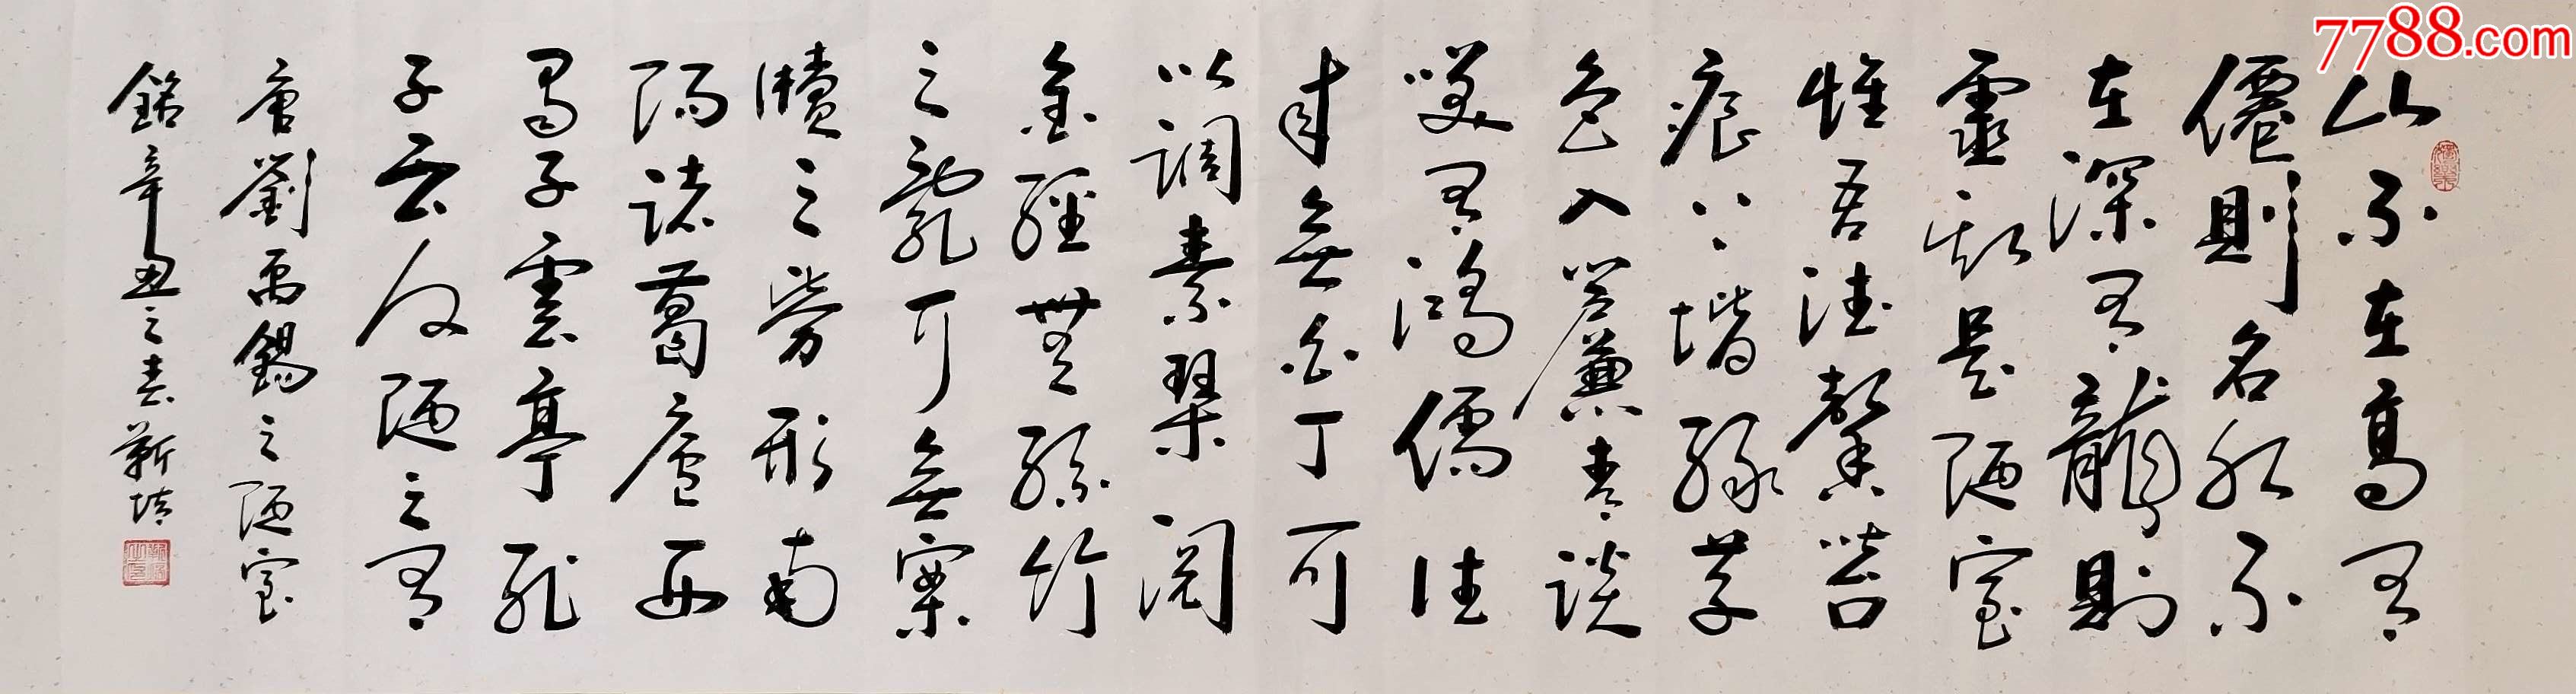 山不在高有
僊則名水不
在深有龍則
靈斯是陋室
惟吾德馨苔
痕上階綠草
色入簾青談
笑有鴻儒往
來無白丁可
以調素琴閱
金經無絲竹
之亂耳無案
牘之勞形南
陽諸葛廬西
蜀子雲亭孔
子云何陋之有
唐劉禹錫之陋室
銘辛丑之春靳
7788.com